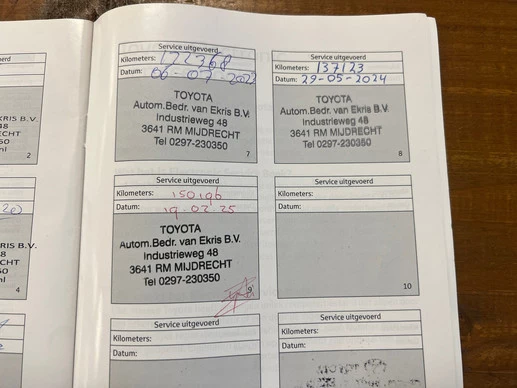 erd
KRIS B.V.
48
ECHT
50
nl
2
erd
RIS B.V.
48
CHT
50
nl
4
erd
Service uitgevoerd
Kilometers: 122368
Datum: 06-07-2023
TOYOTA
Autom.Bedr. van Ekris B.V.
Industrieweg 48
3641 RM MIJDRECHT
Tel 0297-230350
7
Service uitgevoerd
Kilometers: 137123
Datum: 29-05-2024
TOYOTA
Autom.Bedr. van Ekris B.V.
Industrieweg 48
3641 RM MIJDRECHT
Tel 0297-230350
8
Service uitgevoerd
Kilometers: 150196
Datum: 19.02.25
TOYOTA
Autom.Bedr. van Ekris B.V.
Industrieweg 48
3641 RM MIJDRECHT
Tel 0297-230350
9
Service uitgevoerd
Kilometers:
Datum:
10
Service uitgevoerd
Kilometers:
Datum:
Service uitgevoerd
Kilometers:
Datum: